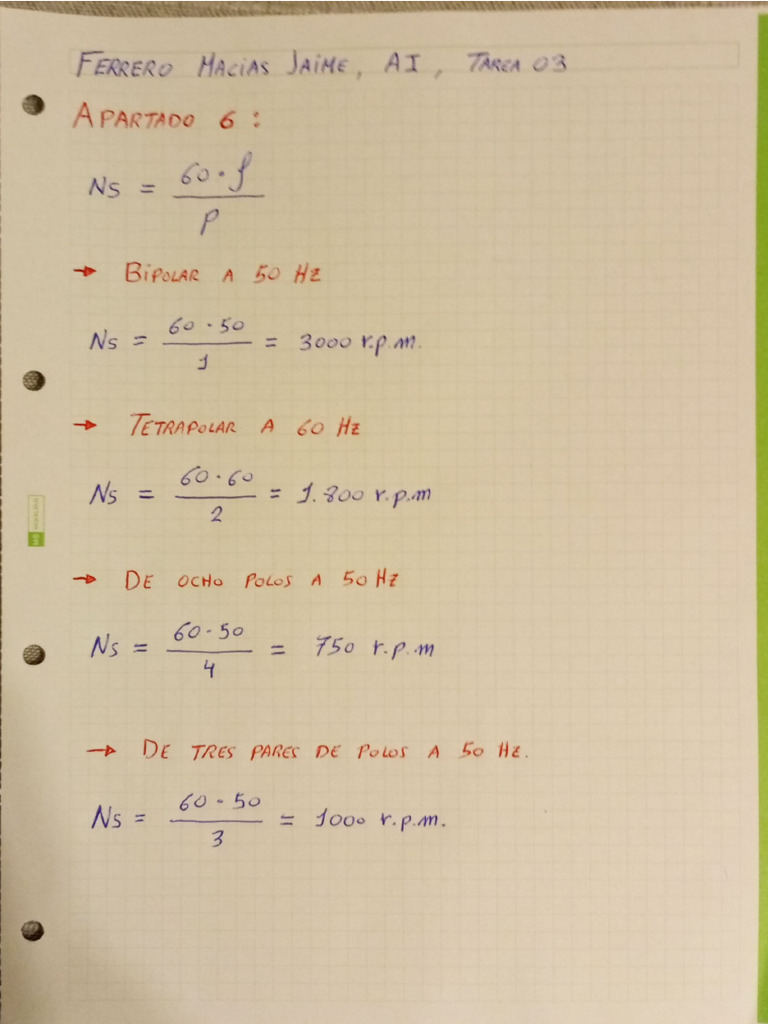 FERRERO MACIAS JAIME, AI, TAREA 03
APARTADO 6:
Ns = 60 · f / P
→ BIPOLAR A 50 Hz
Ns = 60 · 50 / 1 = 3000 r.p.m.
→ TETRAPOLAR A 60 Hz
Ns = 60 · 60 / 2 = 1.800 r.p.m
→ DE OCHO POLOS A 50 Hz
Ns = 60 · 50 / 4 = 750 r.p.m
→ DE TRES PARES DE POLOS A 50 Hz.
Ns = 60 · 50 / 3 = 1000 r.p.m.